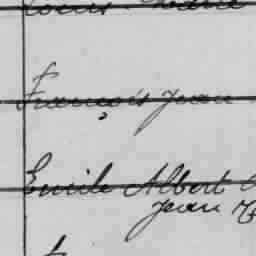 Louis
François Jean
Emile Albert
Jean